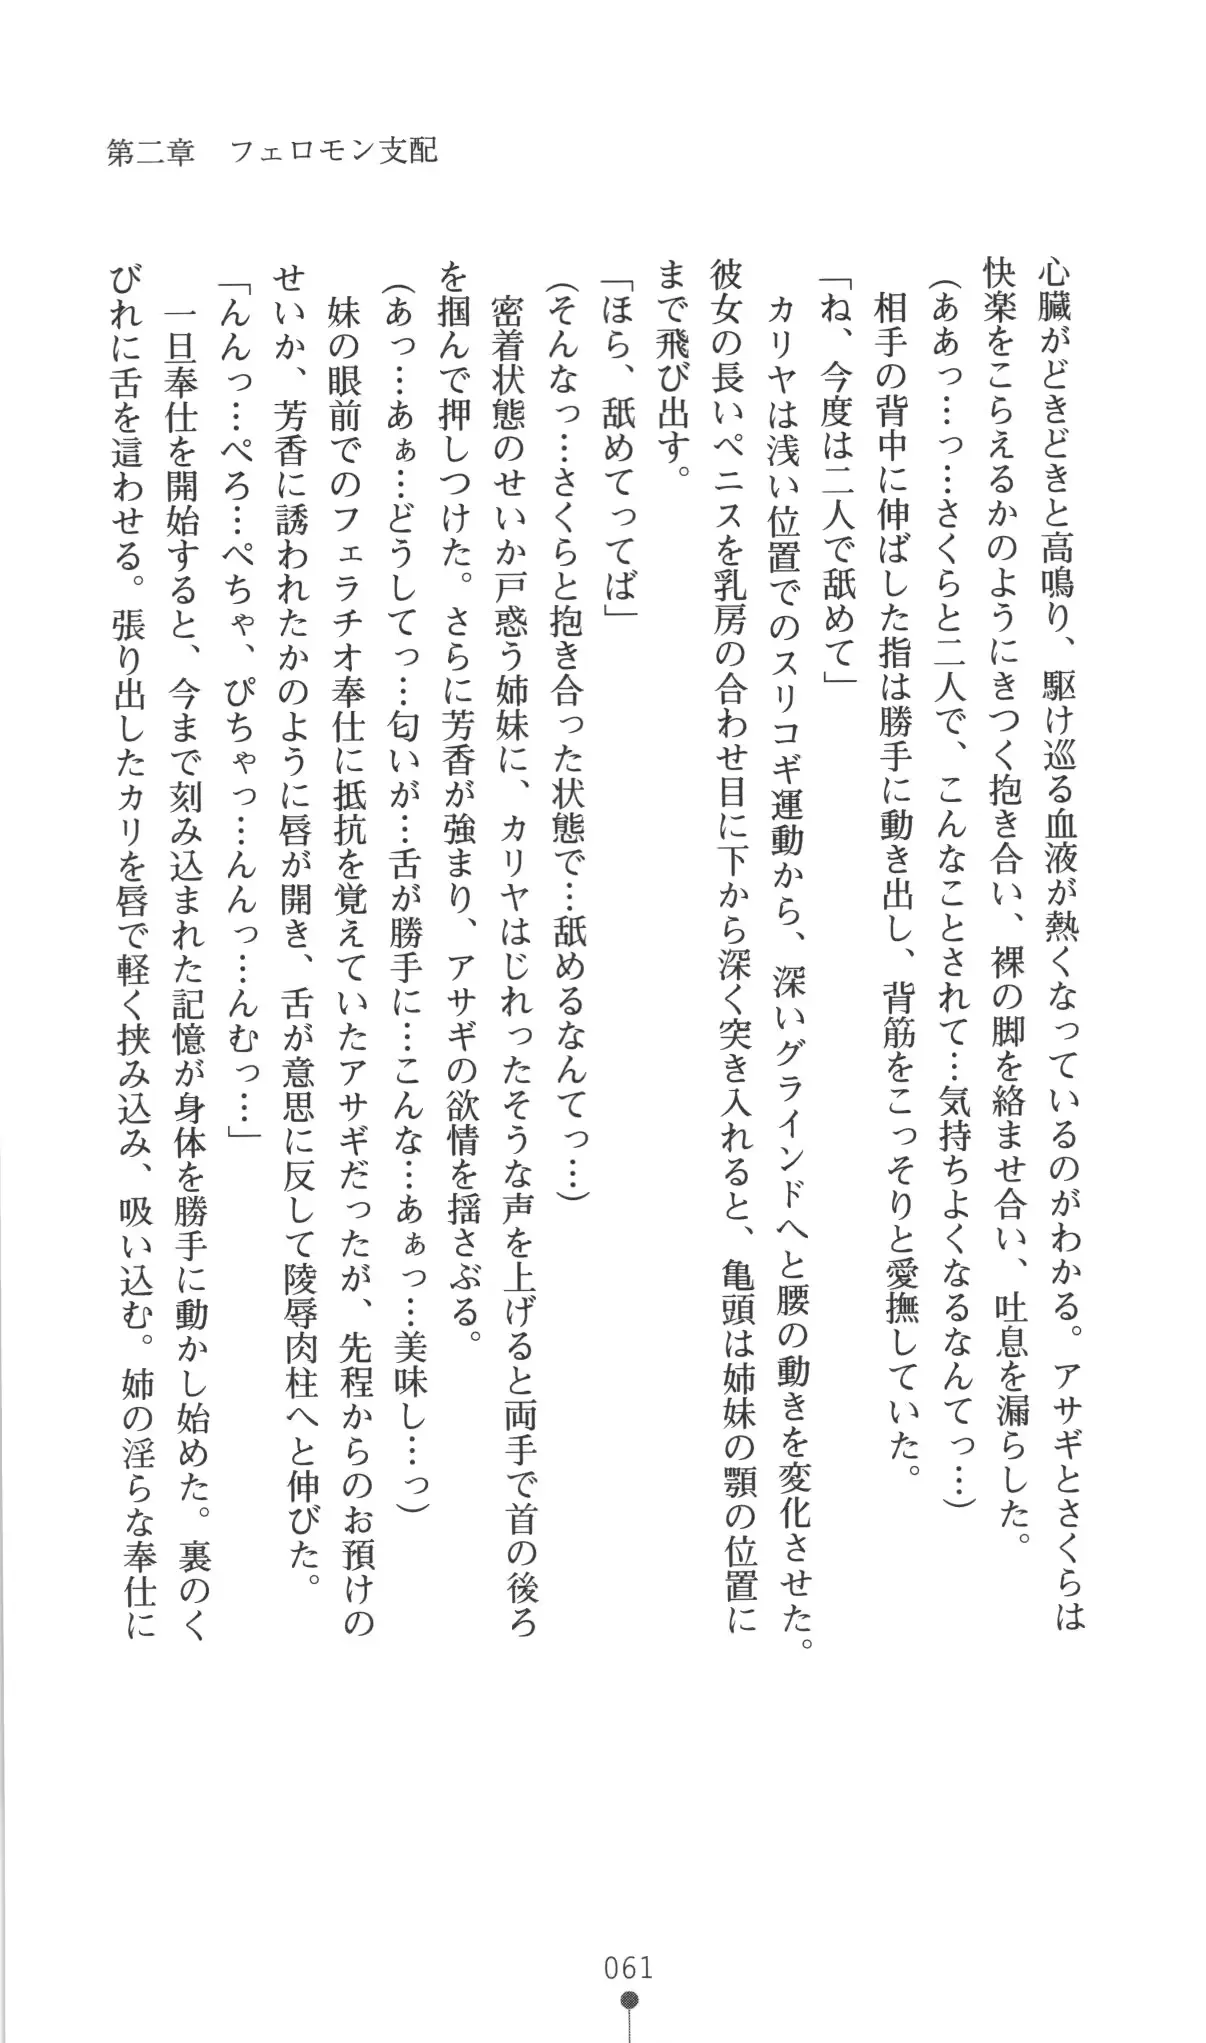 第二章　フェロモン支配
心臓がどきどきと高鳴り、駆け巡る血液が熱くなっているのがわかる。アサギとさくらは
快楽をこらえるかのようにきつく抱き合い、裸の脚を絡ませ合い、吐息を漏らした。
（ああっ…っ…さくらと二人で、こんなことされて…気持ちよくなるなんてっ…）
　相手の背中に伸ばした指は勝手に動き出し、背筋をこっそりと愛撫していた。
「ね、今度は二人で舐めて」
　カリヤは浅い位置でのスリコギ運動から、深いグラインドへと腰の動きを変化させた。
彼女の長いペニスを乳房の合わせ目に下から深く突き入れると、亀頭は姉妹の顎の位置に
まで飛び出す。
「ほら、舐めてってば」
（そんなっ…さくらと抱き合った状態で…舐めるなんてっ…）
　密着状態のせいか戸惑う姉妹に、カリヤはじれったそうな声を上げると両手で首の後ろ
を掴んで押しつけた。さらに芳香が強まり、アサギの欲情を揺さぶる。
（あっ…あぁ…どうしてっ…匂いが…舌が勝手に…こんな…あぁっ…美味し…っ）
　妹の眼前でのフェラチオ奉仕に抵抗を覚えていたアサギだったが、先程からのお預けの
せいか、芳香に誘われたかのように唇が開き、舌が意思に反して陵辱肉柱へと伸びた。
「んんっ…ぺろ…ぺちゃ、ぴちゃっ…んんっ…んむっ…」
　一旦奉仕を開始すると、今まで刻み込まれた記憶が身体を勝手に動かし始めた。裏のく
びれに舌を這わせる。張り出したカリを唇で軽く挟み込み、吸い込む。姉の淫らな奉仕に
061